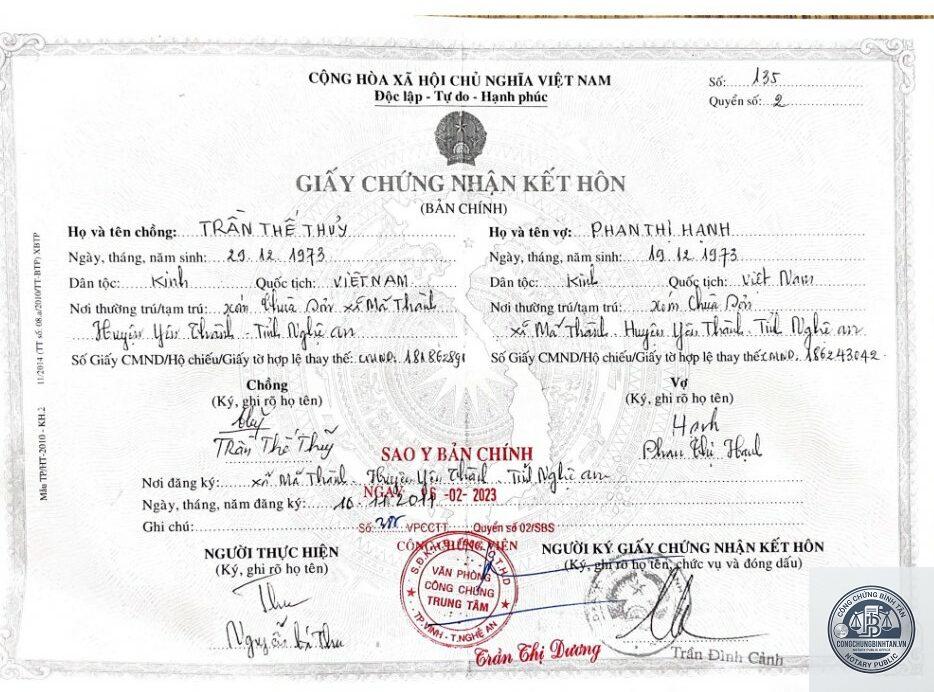 CỘNG HÒA XÃ HỘI CHỦ NGHĨA VIỆT NAM
Độc lập - Tự do - Hạnh phúc
Số: 135
Quyển số: 2
GIẤY CHỨNG NHẬN KẾT HÔN
(BẢN CHÍNH)
Họ và tên chồng: TRẦN THẾ THUỶ
Họ và tên vợ: PHAN THỊ HẠNH
Ngày, tháng, năm sinh: 29.12.1973
Ngày, tháng, năm sinh: 19.12.1973
Dân tộc: Kinh Quốc tịch: VIỆT NAM
Dân tộc: Kinh Quốc tịch: Việt Nam
Nơi thường trú/tạm trú: xóm Chùa Sơn xã Mã Thành
Nơi thường trú/tạm trú: xóm Chùa Sơn
Huyện Yên Thành - Tỉnh Nghệ an
xã Mã Thành. Huyện Yên Thành. Tỉnh Nghệ an
Số Giấy CMND/Hộ chiếu/Giấy tờ hợp lệ thay thế: CMND.
Số Giấy CMND/Hộ chiếu/Giấy tờ hợp lệ thay thế: CMND. 186243042
Chồng
Vợ
(Ký, ghi rõ họ tên)
(Ký, ghi rõ họ tên)
Thuỷ
Hạnh
Trần Thế Thuỷ
Phan Thị Hạnh
SAO Y BẢN CHÍNH
Nơi đăng ký: xã Mã Thành - Huyện Yên Thành - Tỉnh Nghệ an
NGÀY 16 -02- 2023
Ngày, tháng, năm đăng ký: 10.11.2011
Ghi chú:
Số: VPCCTT Quyển số 02/SBS
CÔNG CHỨNG VIÊN
NGƯỜI THỰC HIỆN
NGƯỜI KÝ GIẤY CHỨNG NHẬN KẾT HÔN
(Ký, ghi rõ họ tên)
(Ký, ghi rõ họ tên, chức vụ và đóng dấu)
VĂN PHÒNG
CÔNG CHỨNG
TRUNG TÂM
TP.VINH - T.NGHỆ AN
Thu
Trần Thị Dương
Trần Đình Cảnh
Mẫu TP/HT-2010 - KH.2
CÔNG CHỨNG BÌNH TÂN
CONGCHUNGBINHTAN.VN
NOTARY PUBLIC OFFICE
NOTARY PUBLIC